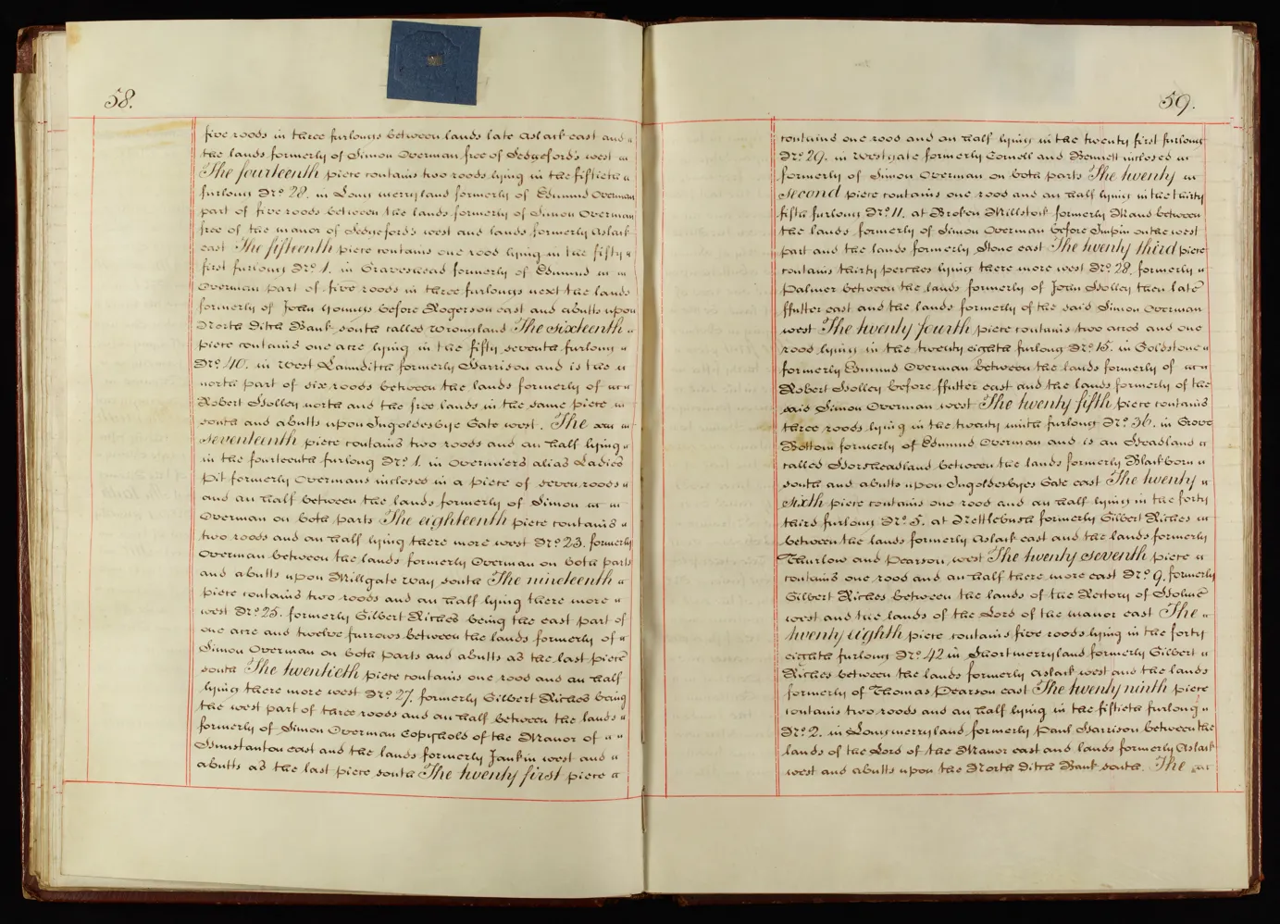 58.
five roods in three furlongs between lands late Aslack east and
the lands formerly of Simon Overman free of Sedgeford's west
The fourteenth piece contains two roods lying in the fiftieth
furlong No. 28. in Long merryland formerly of Edmund Overman
part of five roods between the lands formerly of Simon Overman
free of the manor of Sedgeford's west and lands formerly Aslack
east The fifteenth piece contains one rood lying in the fifty
first furlong No. 1. in Graveshead formerly of Edmund
Overman part of five roods in three furlongs next the lands
formerly of John Youngs before Rogerson east and abutts upon
North Ditch Bank south called Wrongland The sixteenth
piece contains one acre lying in the fifty seventh furlong
No. 40. in West Lamditch formerly Harrison and is the
north part of six roods between the lands formerly of
Robert Holley north and the free lands in the same piece
south and abutts upon Ingoldesbye Gate west. The
seventeenth piece contains two roods and an half lying
in the fourteenth furlong No. 1. in Overmiers alias Ladies
Pit formerly Overmans inclosed in a piece of seven roods
and an half between the lands formerly of Simon
Overman on both parts The eighteenth piece contains
two roods and an half lying there more west No. 23. formerly
Overman between the lands formerly Overman on both parts
and abutts upon Millgate way south The nineteenth
piece contains two roods and an half lying there more
west No. 25. formerly Gilbert Riches being the east part of
one acre and twelve furrows between the lands formerly of
Simon Overman on both parts and abutts as the last piece
south The twentieth piece contains one rood and an half
lying there more west No. 27. formerly Gilbert Riches being
the west part of three roods and an half between the lands
formerly of Simon Overman Copyhold of the Manor of
Hunstanton east and the lands formerly Jankin west and
abutts as the last piece south The twenty first piece
59.
contains one rood and an half lying in the twenty first furlong
No. 29. in Westgate formerly Cornell and Bennett inclosed
formerly of Simon Overman on both parts The twenty
second piece contains one rood and an half lying in the thirty
fifth furlong No. 11. at Broken Millstock formerly Mand between
the lands formerly of Simon Overman before Inpin on the west
part and the lands formerly Stone east The twenty third piece
contains thirty perches lying there more west No. 28. formerly
Palmer between the lands formerly of John Holley then late
ffutter east and the lands formerly of the said Simon Overman
west The twenty fourth piece contains two acres and one
rood lying in the twenty eighth furlong No. 15. in Goldstone
formerly Edmund Overman between the lands formerly of
Robert Holley before ffutter east and the lands formerly of the
said Simon Overman west The twenty fifth piece contains
three roods lying in the twenty ninth furlong No. 36. in Grove
Bottom formerly of Edmund Overman and is an Headland
called Horsheadland between the lands formerly Blackborn
south and abutts upon Ingoldesbyes Gate east The twenty
sixth piece contains one rood and an half lying in the forty
third furlong No. 5. at Nettlebush formerly Gilbert Riches
between the lands formerly Aslack east and the lands formerly
Thurlow and Pearson west The twenty seventh piece
contains one rood and an half there more east No. 9. formerly
Gilbert Riches between the lands of the Rectory of Holme
west and the lands of the Lord of the manor east The
twenty eighth piece contains five roods lying in the forty
eighth furlong No. 42 in Shortmerryland formerly Gilbert
Riches between the lands formerly Aslack west and the lands
formerly of Thomas Pearson east The twenty ninth piece
contains two roods and an half lying in the fiftieth furlong
No. 2. in Longmerryland formerly Paul Harrison between the
lands of the Lord of the Manor east and lands formerly Aslack
west and abutts upon the North Ditch Bank south. The